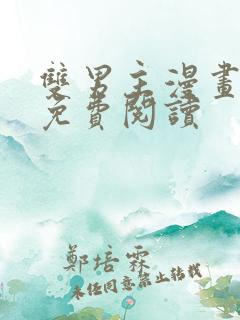 雙男主漫畫
免費閱讀
鄭培霖
未任同意禁止轉載